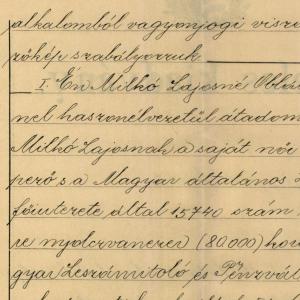 alkalomból vagyonjogi viszo
zőkép szabályozzuk
I. Én Milkó Lajosné Oblá
nek haszonélvezetül átadom
Milkó Lajosnak a saját női
pező s a Magyar általános
főüzlete által 15740 szám
re nyolczvanezer (80000) ko
gyar Leszámitoló és Pénzvál